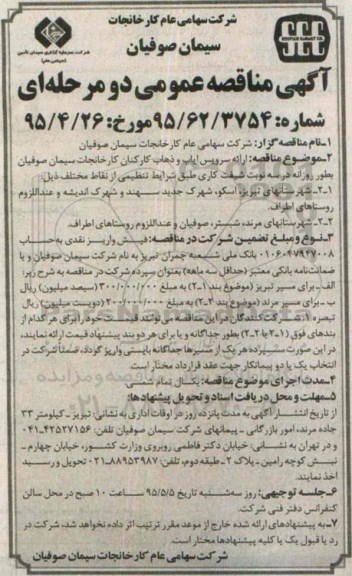 شرکت سهامی عام کارخانجات
سیمان صوفیان
آگهی مناقصه عمومی دو مرحله‌ای
شماره: ۹۵/۶۲/۳۷۵۴ مورخ: ۹۵/۴/۲۶
۱-نام مناقصه گزار: شرکت سهامی عام کارخانجات سیمان صوفیان
۲-موضوع مناقصه: ارائه سرویس ایاب و ذهاب کارکنان کارخانجات سیمان صوفیان
بطور روزانه در سه نوبت شیفت کاری طبق شرایط تنظیمی از نقاط مختلف ذیل:
۱-۲-شهرستانهای تبریز، اسکو، شهرک جدید سهند و شهرک اندیشه و عنداللزوم
روستاهای اطراف.
۲-۲-شهرستانهای مرند، شبستر، صوفیان و عنداللزوم روستاهای اطراف.
۳-نوع و مبلغ تضمین شرکت در مناقصه: فیش واریز نقدی به حساب
۰۱۰۶۰۴۷۹۲۷۰۰۸ بانک ملی شعبه چمران تبریز به نام شرکت سیمان صوفیان و یا
ضمانت‌نامه بانکی معتبر (حداقل سه ماهه) بعنوان سپرده شرکت در مناقصه به شرح زیر:
الف-برای مسیر تبریز (موضوع بند ۱-۲) به مبلغ ۳۰۰/۰۰۰/۰۰۰ (سیصد میلیون) ریال
ب-برای مسیر مرند (موضوع بند ۲-۲) به مبلغ ۲۰۰/۰۰۰/۰۰۰ (دویست میلیون) ریال
تبصره ۱: شرکت‌کنندگان در این مناقصه می توانند قیمت خود را برای هر کدام از
بندهای فوق (۱-۲ یا ۲-۲) بطور جداگانه و یا برای هر دو بند پیشنهاد قیمت ارائه نمایند،
در این صورت سپرده هر یک از مسیرها جداگانه بایستی واریز گردد، ضمناً شرکت در
انتخاب یک یا دو پیمانکار جهت عقد قرارداد مختار است.
۴-مدت اجرای موضوع مناقصه: یکسال تمام شمسی
۵-مهلت و محل دریافت اسناد و تحویل پیشنهادها:
از تاریخ انتشار آگهی به مدت پانزده روز در اوقات اداری به نشانی: تبریز - کیلومتر ۳۳
جاده مرند، امور بازرگانی - پیمانهای شرکت سیمان صوفیان تلفن: ۴۲۵۲۷۱۵۶-۰۴۱
و در تهران به نشانی: خیابان دکتر فاطمی روبروی وزارت کشور، خیابان چهارم -
نبش کوچه رامین - پلاک ۲-طبقه دوم، تلفن: ۸۸۹۵۳۹۸۷-۰۲۱ تحویل و رسید
اخذ نمایند.
۶-جلسه توجیهی: روز سه‌شنبه تاریخ ۹۵/۵/۵ ساعت ۱۰ صبح در محل سالن
کنفرانس دفتر فنی شرکت.
۷-به پیشنهادهای ارائه شده خارج از موعد مقرر ترتیب اثر داده نخواهد شد، شرکت در
رد یا قبول یک یا کلیه پیشنهادها مختار است.
شرکت سهامی عام کارخانجات سیمان صوفیان